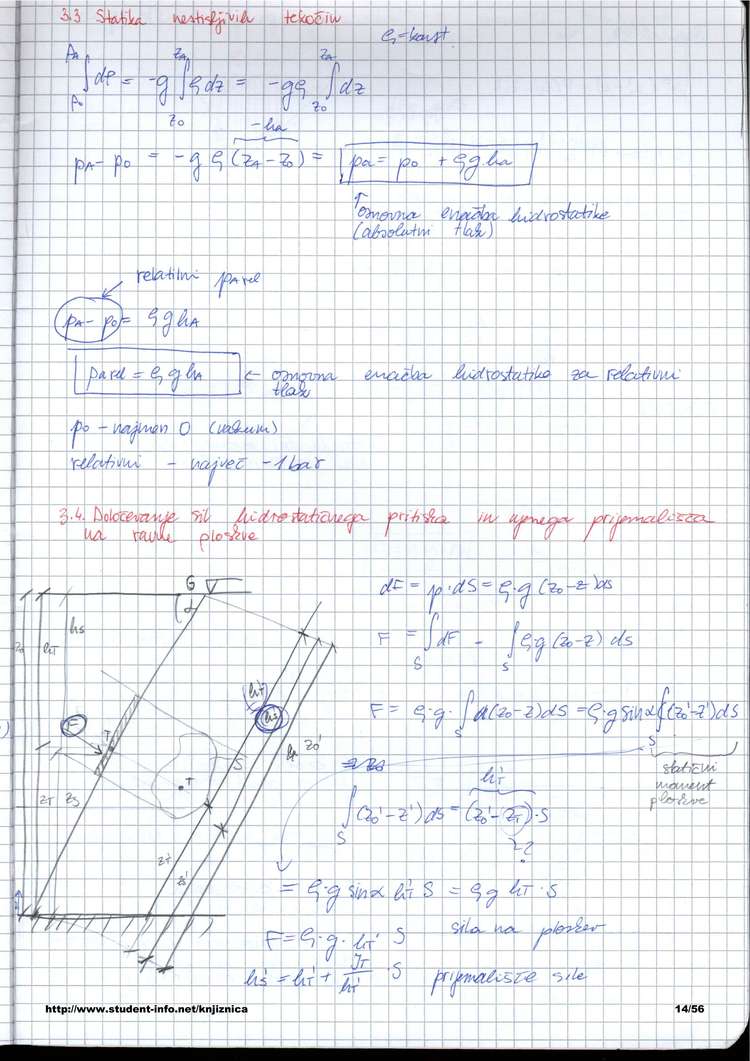 3.3 Statika nestisljivih tekočin
ρ=konst.
∫ dp = -g ∫ ρ dz = -gρ ∫ dz
-ha
pA - p0 = -g ρ (zA - z0) = pa = p0 + ρ g ha
↑ osnovna enačba hidrostatike
(absolutni tlak)
relativni parel
pA - p0 = ρ g hA
parel = ρ g hA ← osnovna enačba hidrostatike za relativni
tlak
p0 - najmanj 0 (vakuum)
relativni - največ -1 bar
3.4. Določevanje sil hidrostatičnega pritiska in njenega prijemališča
na ravne ploskve
G
α
hs
hT
F
T
T
S
hT'
hs'
z0'
zT
zs
zT'
dF = p · dS = ρ·g (z0-z) ds
F = ∫ dF - ∫ ρ·g (z0-z) ds
F = ρ·g · ∫ (z0-z) dS = ρ·g sinα ∫ (z0'-z') dS
statični
moment
ploskve
hT'
∫ (z0'-z') ds = (z0'-zT')·S
??
= ρ·g sinα hT' S = ρ g hT · S
F = ρ·g· hT' S sila na ploskev
hs' = hT' + JT/hT' · S prijemališče sile
http://www.student-info.net/knjiznica
14/56